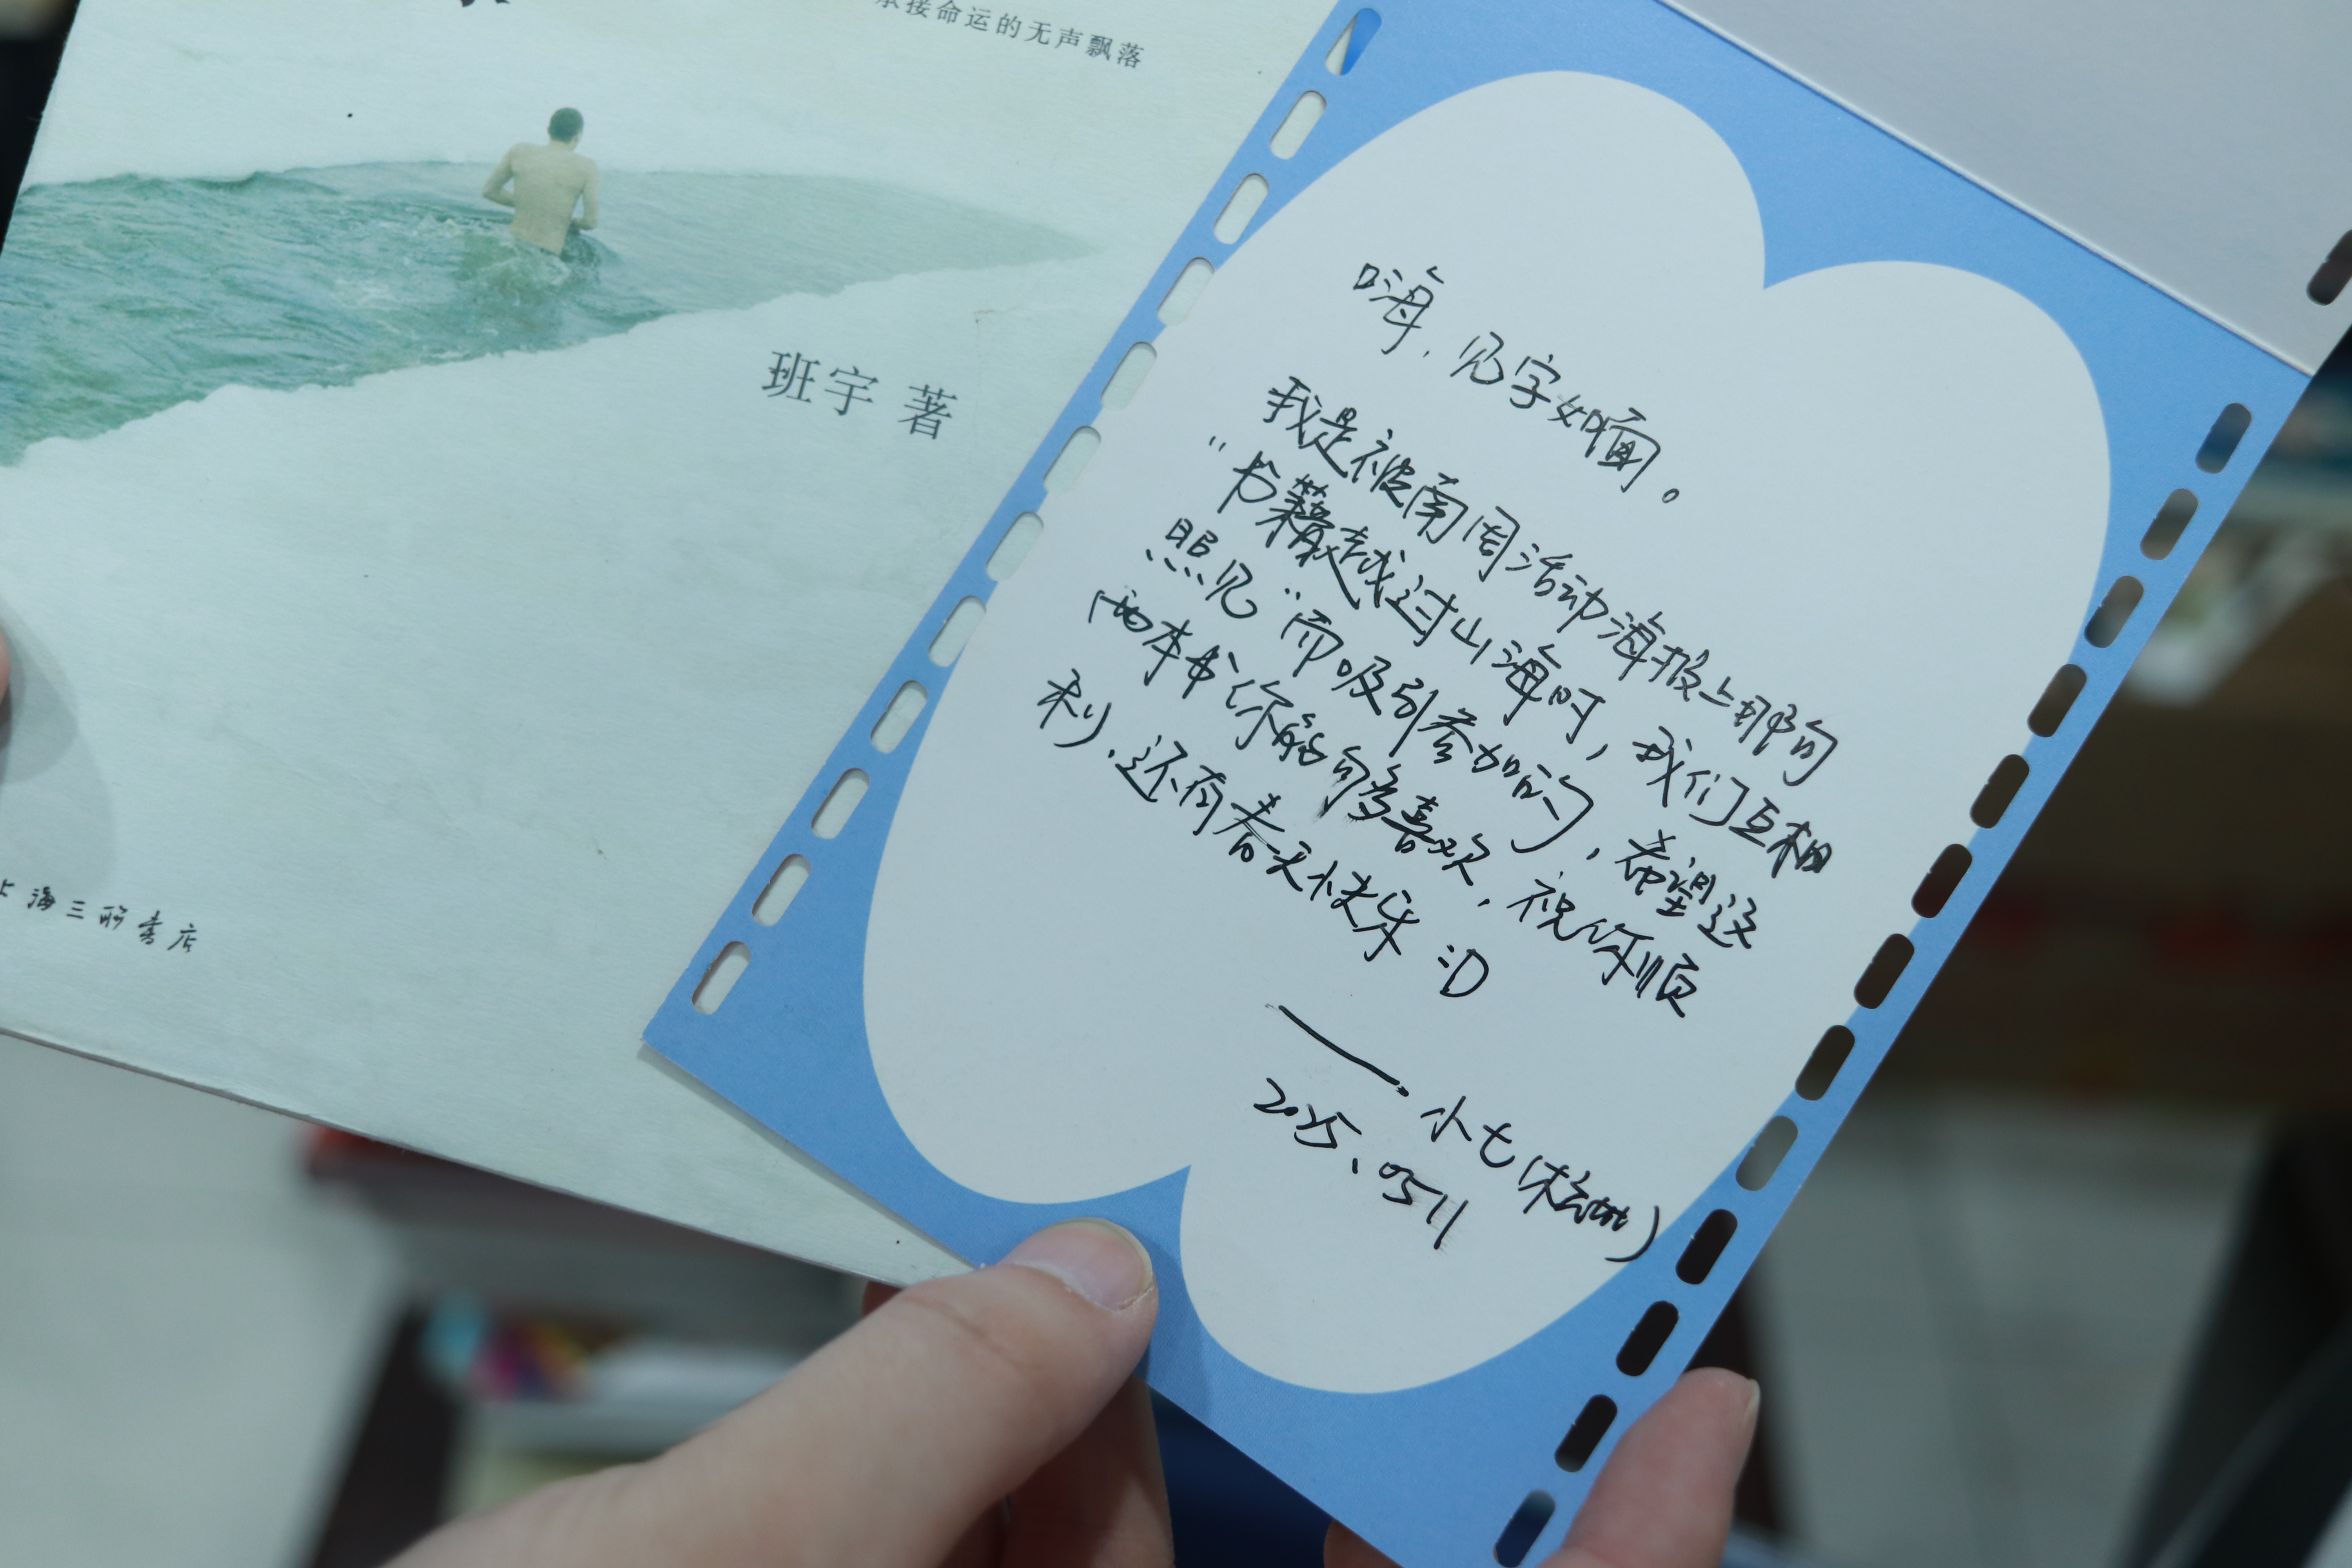 承接命运的无声飘落
班宇 著
上海三联书店
嗨，见字如面。
我是被南周活动海报上那句
“书籍越过山海时，我们互相
照见”而吸引参加的，希望这
两本书你能够喜欢，祝你顺
利，还有春天快乐 :D
——小七
2025.0511